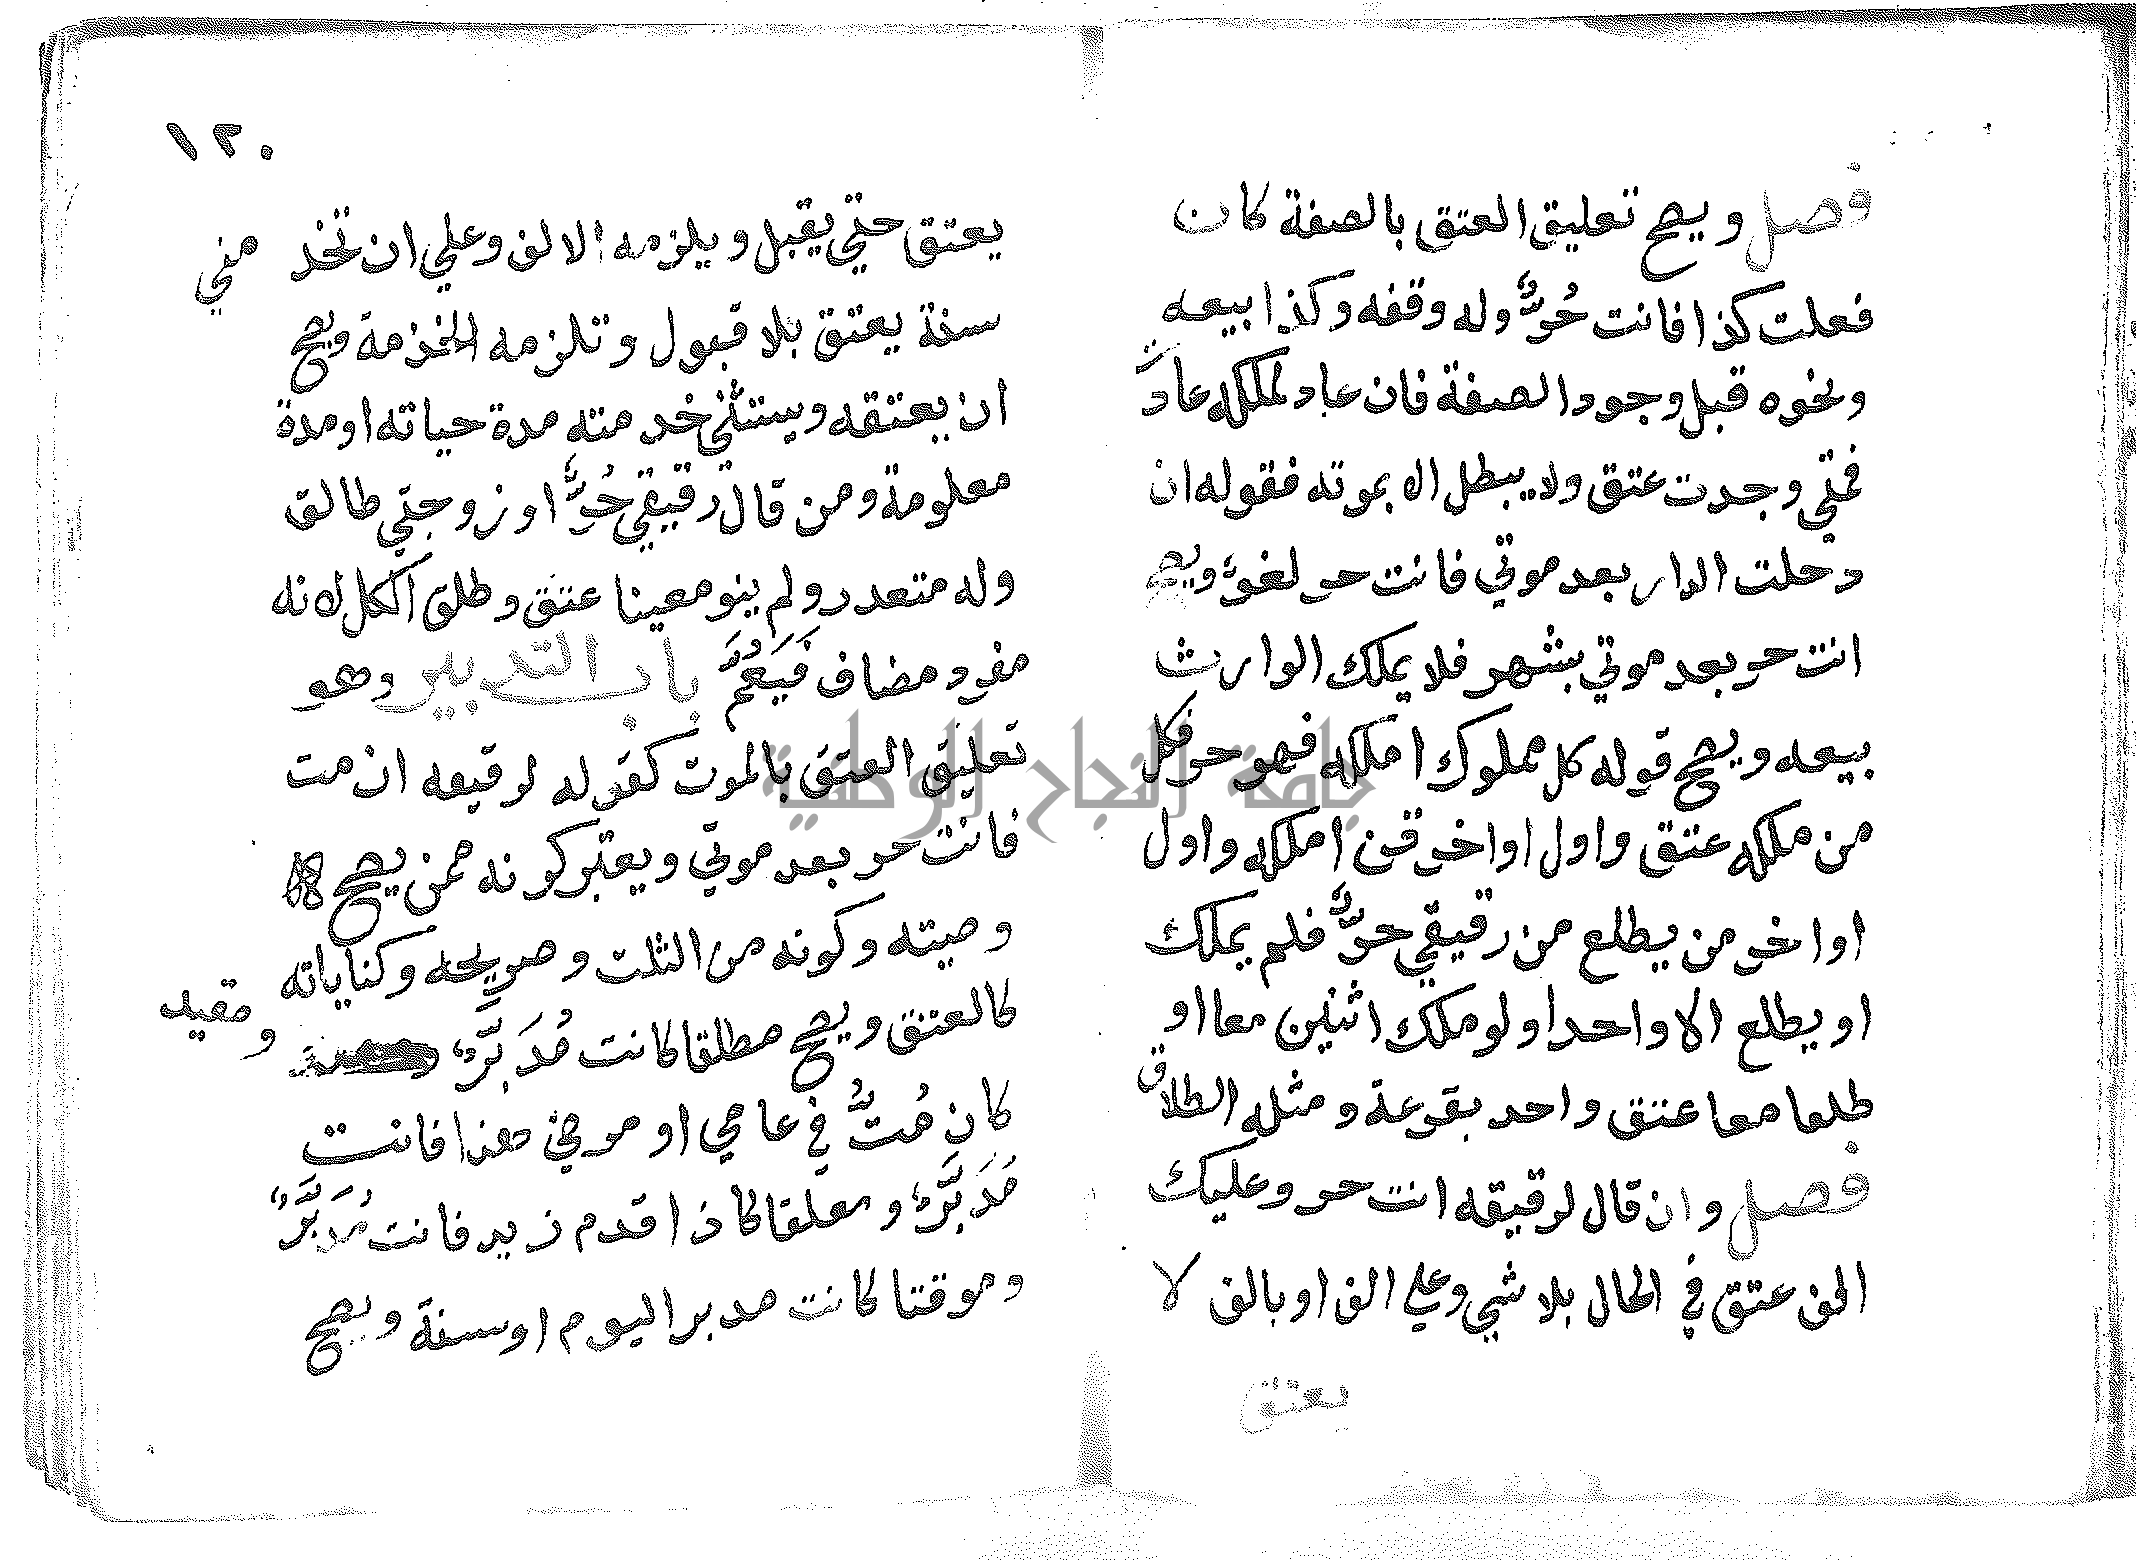 فصل ويصح تعليق العتق بالصفة كان
فعلت كذا فانت حُرٌّ وله وقفه وكذا بيعه
ونحوه قبل وجود الصفة فان عاد لملكه عادت
فمتي وجدت عتق ولا يبطل الا بموته فقوله ان
دخلت الدار بعد موتي فانت حر لغو ويصح
انت حر بعد موتي بشهر فلا يملك الوارث
بيعه ويصح قوله كل مملوك املكه فهو حر فكل
من ملكه عتق واول او اخر قن املكه واول
او اخر من يطلع من رقيقي حرٌّ فلم يملك
او يطلع الا واحدا ولو ملك اثنين معا او
طلعا معا عتق واحد بقرعة ومثله الطلاق
فصل وان قال لرقيقه انت حر وعليك
الف عتق في الحال بلا شي وعلي الف او بالف لا
يعتق
١٢٠
يعتق حتي يقبل ويلزمه الالف وعلي ان تخد مني
سنة يعتق بلا قبول وتلزمه الخدمة ويصح
ان يعتقه ويستثني خدمته مدة حياته او مدة
معلومة ومن قال رقيقي حُرٌّ او زوجتي طالق
وله متعدد ولم ينو معينا عتق وطلق الكل لانه
مفرد مضاف فَيَعُمَّ باب التدبير وهو
تعليق العتق بالموت كقوله لرقيقه ان مت
فانت حر بعد موتي ويعتبر كونه ممن يصح
وصيته وكونه من الثلث وصريحه وكناياته
كالعتق ويصح مطلقا كانت مُدَبَّرٌ ومقيد
كان مُتُّ في عامي او مرضي هذا فانت
مُدَبَّرٌ ومعلقا كاذا قدم زيد فانت مُدَبَّرٌ
وموقتا كانت مدبر اليوم او سنة ويصح
جامعة النجاح الوطنية